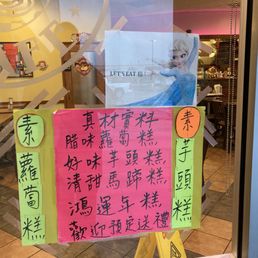 LET'S EAT
真材實料
臘味蘿蔔糕
好味芋頭糕
清甜馬蹄糕
鴻運年糕
歡迎預定送禮
素蘿蔔糕
素芋頭糕